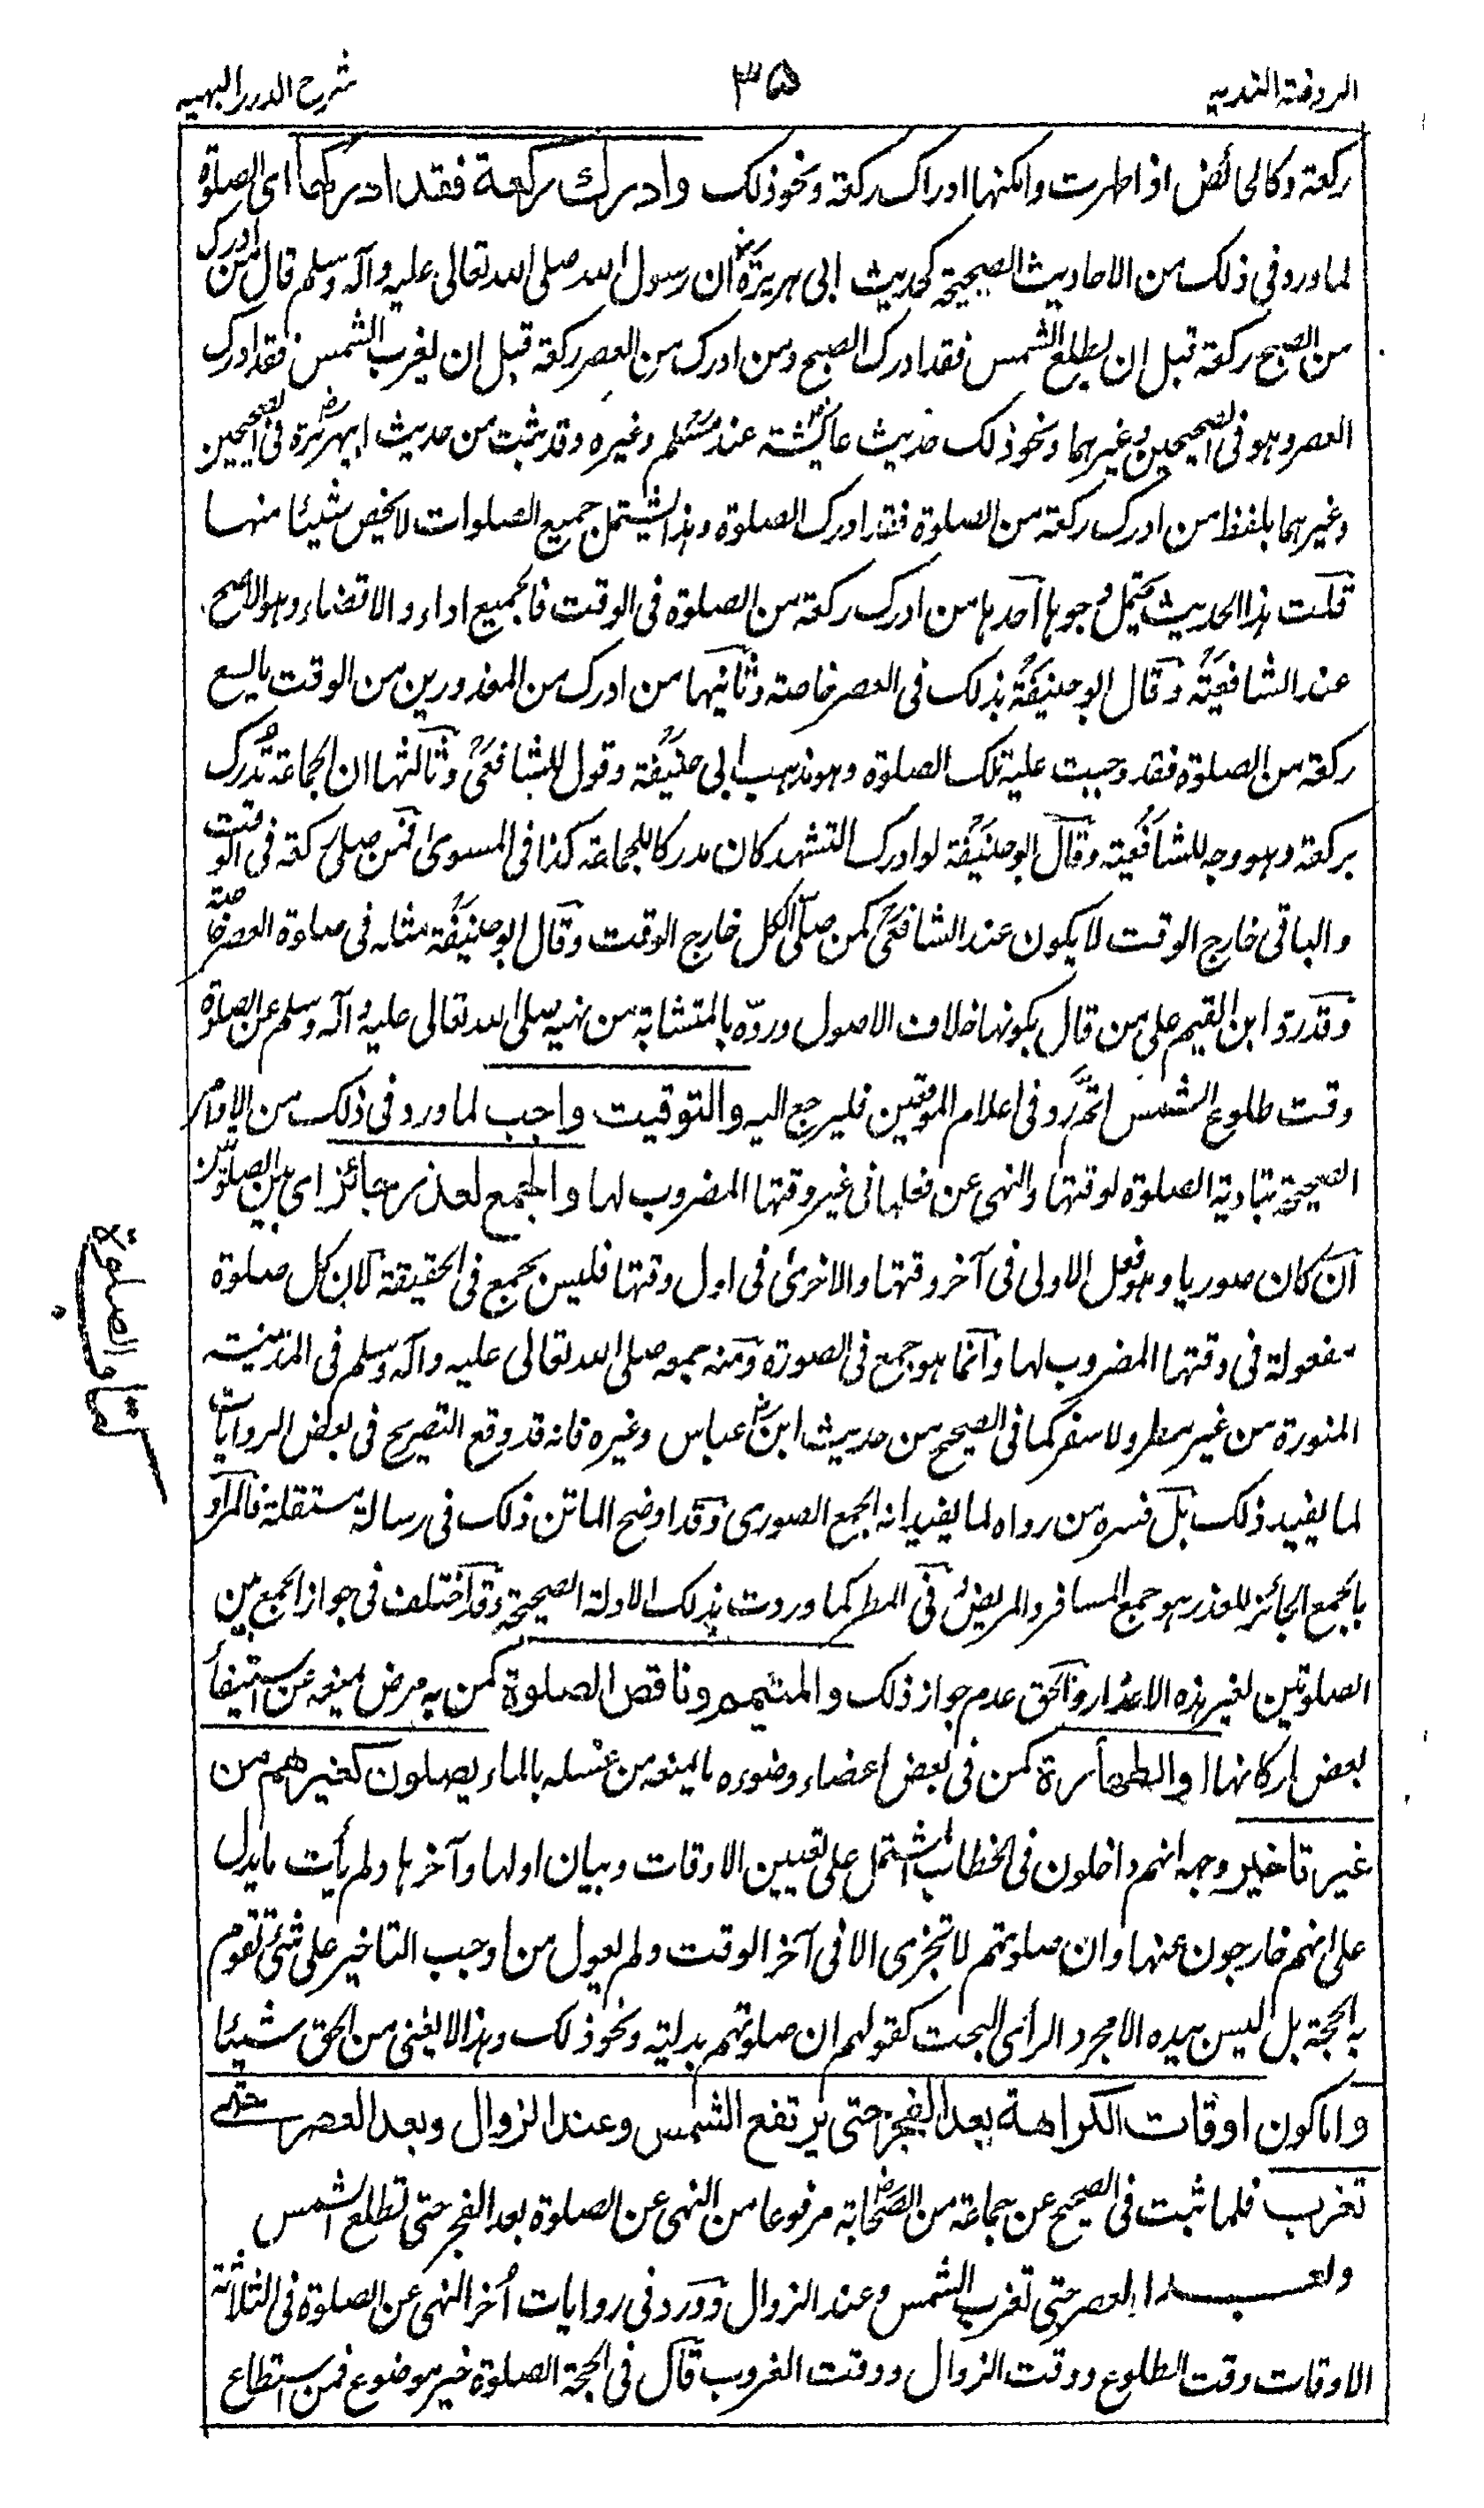 الروضة الندية
۳۵
شرح الدرر البهيه
ركعة وكالحائض اذا طهرت وامكنها ادراك ركعة ونحو ذلك وادرك ركعة فقد ادركها اى الصلوة
لما ورد فى ذلك من الاحاديث الصحيحة كحديث ابى هريرة رض ان رسول الله صلى الله تعالى عليه وآله وسلم قال من ادرك
من الصبح ركعة قبل ان يطلع الشمس فقد ادرك الصبح ومن ادرك من العصر ركعة قبل ان يغرب الشمس فقد ادرك
العصر وهو فى الصحيحين وغيرهما ونحو ذلك حديث عائشة عند مسلم وغيره وقد ثبت من حديث ابيهريرة فى الصحيحين
وغيرهما بلفظ من ادرك ركعة من الصلوة فقد ادرك الصلوة وهذا يشتمل جميع الصلوات لا يخص شيئا منها
قلت هذا الحديث يحتمل وجوها احدها من ادرك ركعة من الصلوة فى الوقت فالجميع اداء والا قضاء وهو الاصح
عند الشافعية وقال ابو حنيفة بذلك فى العصر خاصة وثانيها من ادرك من المعذورين من الوقت ما يسع
ركعة من الصلوة فقد وجبت عليه تلك الصلوة وهو مذهب ابى حنيفة وقول للشافعى وثالثها ان الجماعة تدرك
بركعة وهو وجه للشافعية وقال ابو حنيفة لو ادرك التشهد كان مدركا للجماعة كذا فى المسوى فمن صلى ركعة فى الوقت
والباقى خارج الوقت لا يكون عند الشافعى كمن صلى الكل خارج الوقت وقال ابو حنيفة مثله فى صلوة العصر خاصة
وقد رد ابن القيم على من قال بكونها خلاف الاصول ورده بالمتشابة من نهيه صلى الله تعالى عليه وآله وسلم عن الصلوة
وقت طلوع الشمس اتم رد فى اعلام الموقعين فليرجع اليه والتوقيت واجب لما ورد فى ذلك من الاوامر
الصحيحة بتادية الصلوة لوقتها والنهى عن فعلها فى غير وقتها المضروب لها والجمع لعذر جائز اى بين الصلوتين
ان كان صوريا وهو فعل الاولى فى آخر وقتها والاخرى فى اول وقتها فليس بجمع فى الحقيقة لان كل صلوة
مفعولة فى وقتها المضروب لها وانما هو جمع فى الصورة ومنه جمعه صلى الله تعالى عليه وآله وسلم فى المدينة
المنورة من غير مطر ولا سفر كما فى الصحيح من حديث ابن عباس رض وغيره فانه قد وقع التصريح فى بعض الروايات
لما يفيد ذلك بل فسره من رواه لما يفيد انه الجمع الصورى وقد اوضح الماتن ذلك فى رسالة مستقلة فالمراد
بالجمع الجائز للعذر هو جمع المسافر والمريض فى المطر كما وردت بذلك الادلة الصحيحة وقد اختلف فى جواز الجمع بين
الصلوتين لغير هذه الاعذار والحق عدم جواز ذلك والمتيمم وناقص الصلوة كمن به مرض يمنعه عن استيفاء
بعض اركانها او الطهارة كمن فى بعض اعضاء وضوءه ما يمنعه من غسله بالماء يصلون كغيرهم من
غير تاخير وجهه انهم داخلون فى الخطاب المشتمل على تعيين الاوقات وبيان اولها وآخرها ولم يأت ما يدل
على انهم خارجون عنها وان صلوتهم لا تجزى الا فى آخر الوقت ولم يعول من اوجب التاخير على شئ تقوم
به الحجة بل ليس بيده الا مجرد الرأى البحت كقولهم ان صلوتهم بدلية ونحو ذلك وهذا لا يغنى من الحق شيئا
واما كون اوقات الكراهة بعد الفجر حتى يرتفع الشمس وعند الزوال وبعد العصر حتى
تغرب فلما ثبت فى الصحيح عن جماعة من الصحابة رض مرفوعا من النهى عن الصلوة بعد الفجر حتى تطلع الشمس
وبعد العصر حتى تغرب الشمس وعند الزوال وورد فى روايات اُخر النهى عن الصلوة فى الثلاثة
الاوقات وقت الطلوع ووقت الزوال ووقت الغروب قال فى الحجة الصلوة خير موضوع فمن استطاع